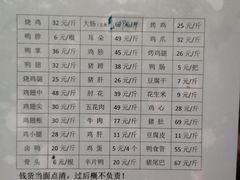 烧鸡 32 元/斤 大肠 元/斤 烤鸡 25 元/斤
鸭脖 6 元/根 耳朵 49 元/斤 鸡爪 32 元/斤
鸭掌 36 元/斤 鸡肠 45 元/斤 烤鸡腿 26 元/斤
鸭翅 32 元/斤 猪蹄 元/斤 鸭肠 5 元/把
烧鸡腿 25 元/斤 猪肝 元/斤 豆腐干 7 元/斤
鸡翅中 45 元/斤 肘花 39 元/斤 花生米 9 元/斤
鸡翅尖 30 元/斤 五花肉 49 元/斤 鸡心 28 元/斤
鸡翅根 26 元/斤 牛肉 77 元/斤 猪肚 67 元/斤
鸡小腿 26 元/斤 鸡肝 11 元/斤 豆腐皮 11 元/斤
卤鸭 20 元/斤 鸡蛋 5 元/4个 鸭食管 55 元/斤
骨头 6 元/根 半片鸭 20 元/斤 猪尾巴 67 元/斤
钱货当面点清,过后概不负责!